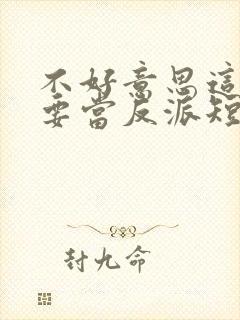 不好意思這
要當反派短
封九命